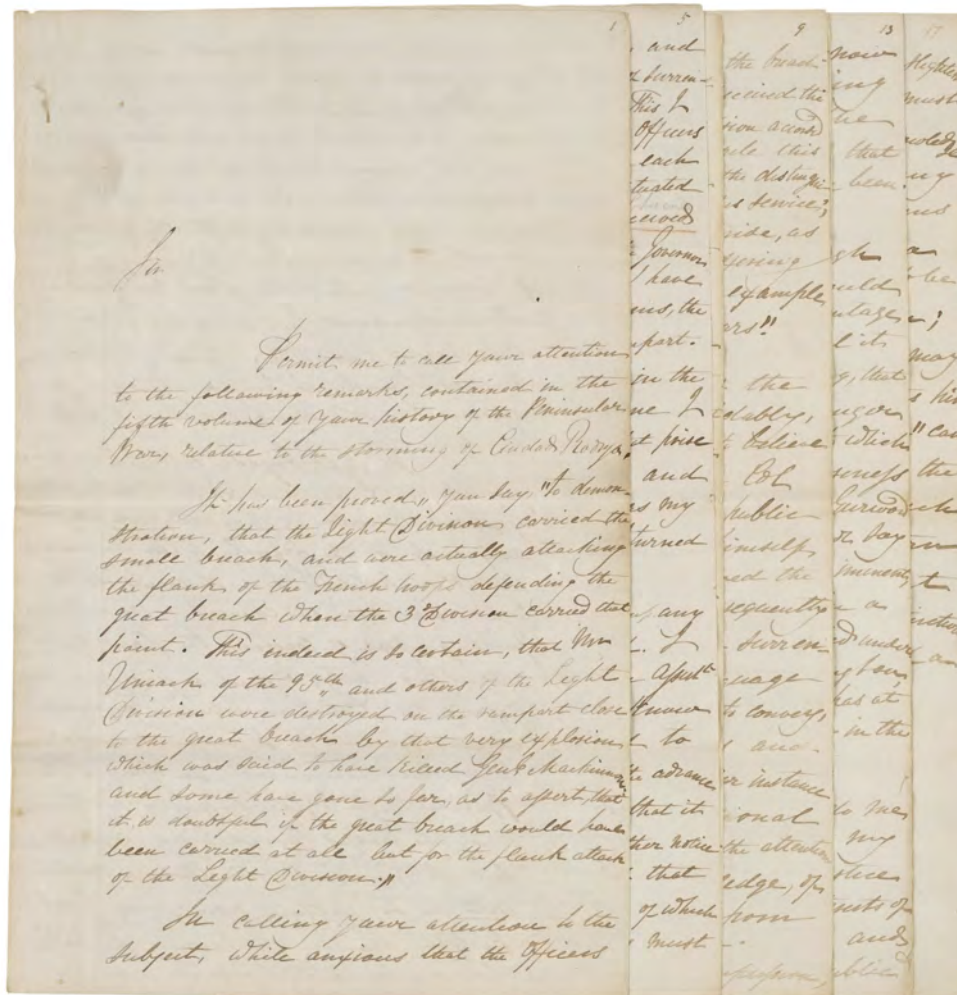 1
Sir
Permit me to call your attention
to the following remarks, contained in the
fifth volume of your history of the Peninsular
War, relative to the storming of Ciudad Rodrigo,
It has been proved, you say, "to demon-
stration, that the Light Division carried the
small breach, and were actually attacking
the flank of the French troops defending the
great breach when the 3d Division carried that
point. This indeed is so certain, that Mr
Uniack of the 95th and others of the Light
Division were destroyed on the rampart close
to the great breach by that very explosion
which was said to have killed Genl Mackinnon
and some have gone so far, as to assert, that
it is doubtful if the great breach would have
been carried at all but for the flank attack
of the Light Division."
In calling your attention to the
subject, while anxious that the Officers
5
and
surren-
This I
Officers
each
tuated
Governor
I have
ms, the
part.
in the
me I
poise
and
as my
turned
any
I
know
to
advance
that it
ther notice
that
of which
must
9
the breach
ceived the
sion accord
this
the distingu
service;
side, as
example
ers"
the
idably,
believe
Col
public
imself
ed the
sequently
surren-
uage
to convey,
and
instance
ional
the attention
ledge, of
from
13
now
ing
he
that
been
gh
ould
ntage
it
that
which
Gurwood
or say
a
under
has at
in the
to me
my
and
public
17
must
a
be
may
his
can
the